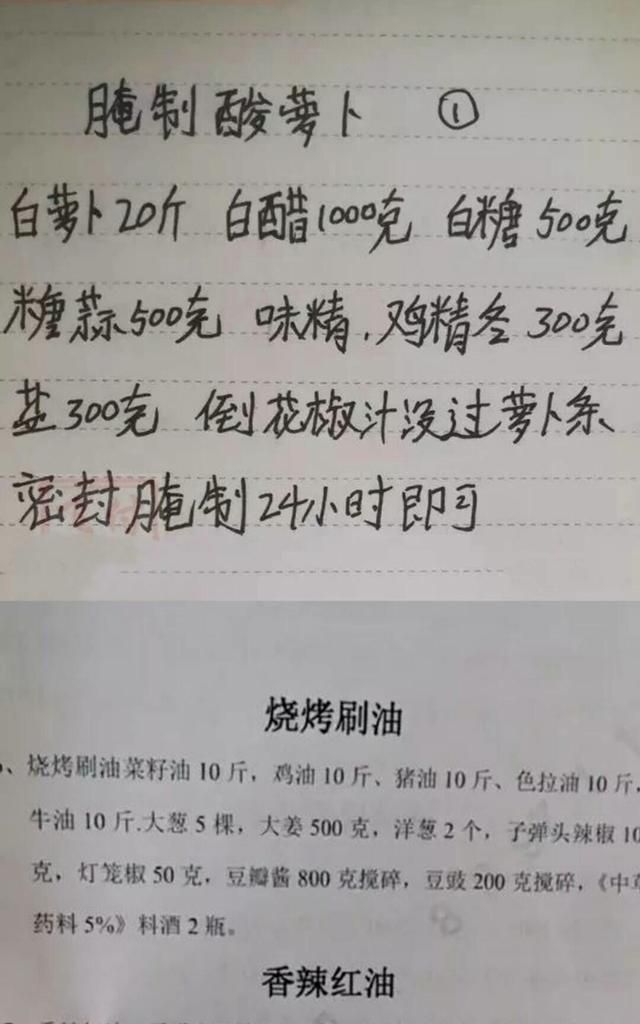 腌制酸萝卜 ①
白萝卜20斤 白醋1000克 白糖500克
糖蒜500克 味精.鸡精各300克
盐300克 倒花椒汁没过萝卜条
密封腌制24小时即可
烧烤刷油
、烧烤刷油菜籽油 10 斤，鸡油 10 斤、猪油 10 斤、色拉油 10 斤，
牛油 10 斤.大葱 5 棵，大姜 500 克，洋葱 2 个，子弹头辣椒 10
克，灯笼椒 50 克，豆瓣酱 800 克搅碎，豆豉 200 克搅碎，《中草
药料 5%》料酒 2 瓶。
香辣红油